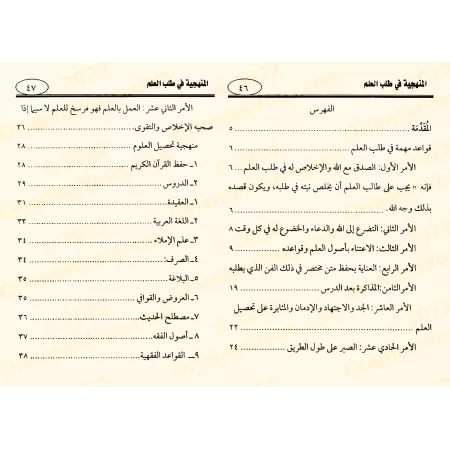 المنهجية في طلب العلم
٤٦
الفهرس
المُقَدِّمَة ٥
قواعد مهمة في طلب العلم ٦
الأمر الأول: الصدق مع الله والإخلاص له في طلب العلم ٦
فإنه « يجب على طالب العلم أن يخلص نيته في طلبه، ويكون قصده
بذلك وجه الله. ٦
الأمر الثاني: التضرع إلى الله والدعاء والخضوع له في كل وقت ٨
الأمر الثالث: الاعتناء بأصول العلم وقواعده ٩
الأمر الرابع: العناية بحفظ متن مختصر في ذلك الفن الذي يطلبه
الأمر الثامن: المذاكرة بعد الدرس ١٩
الأمر العاشر: الجد والاجتهاد والإدمان والمثابرة على تحصيل
العلم ٢٢
الأمر الحادي عشر: الصبر على طول الطريق ٢٤
المنهجية في طلب العلم
٤٧
الأمر الثاني عشر: العمل بالعلم فهو مرسخ للعلم لا سيما إذا
صحبه الإخلاص والتقوى ٢٦
منهجية تحصيل العلوم ٢٨
١ـ حفظ القرآن الكريم ٢٨
٢ـ الدروس ٢٩
١ـ العقيدة ٣١
٢ـ اللغة العربية ٣٣
٣ـ علم الإملاء ٣٤
٤ـ الصرف: ٣٤
٥ـ البلاغة ٣٥
٦ـ العروض والقوافي ٣٥
٧ـ مصطلح الحديث ٣٦
٨ـ أصول الفقه ٣٧
٩ـ القواعد الفقهية ٣٨